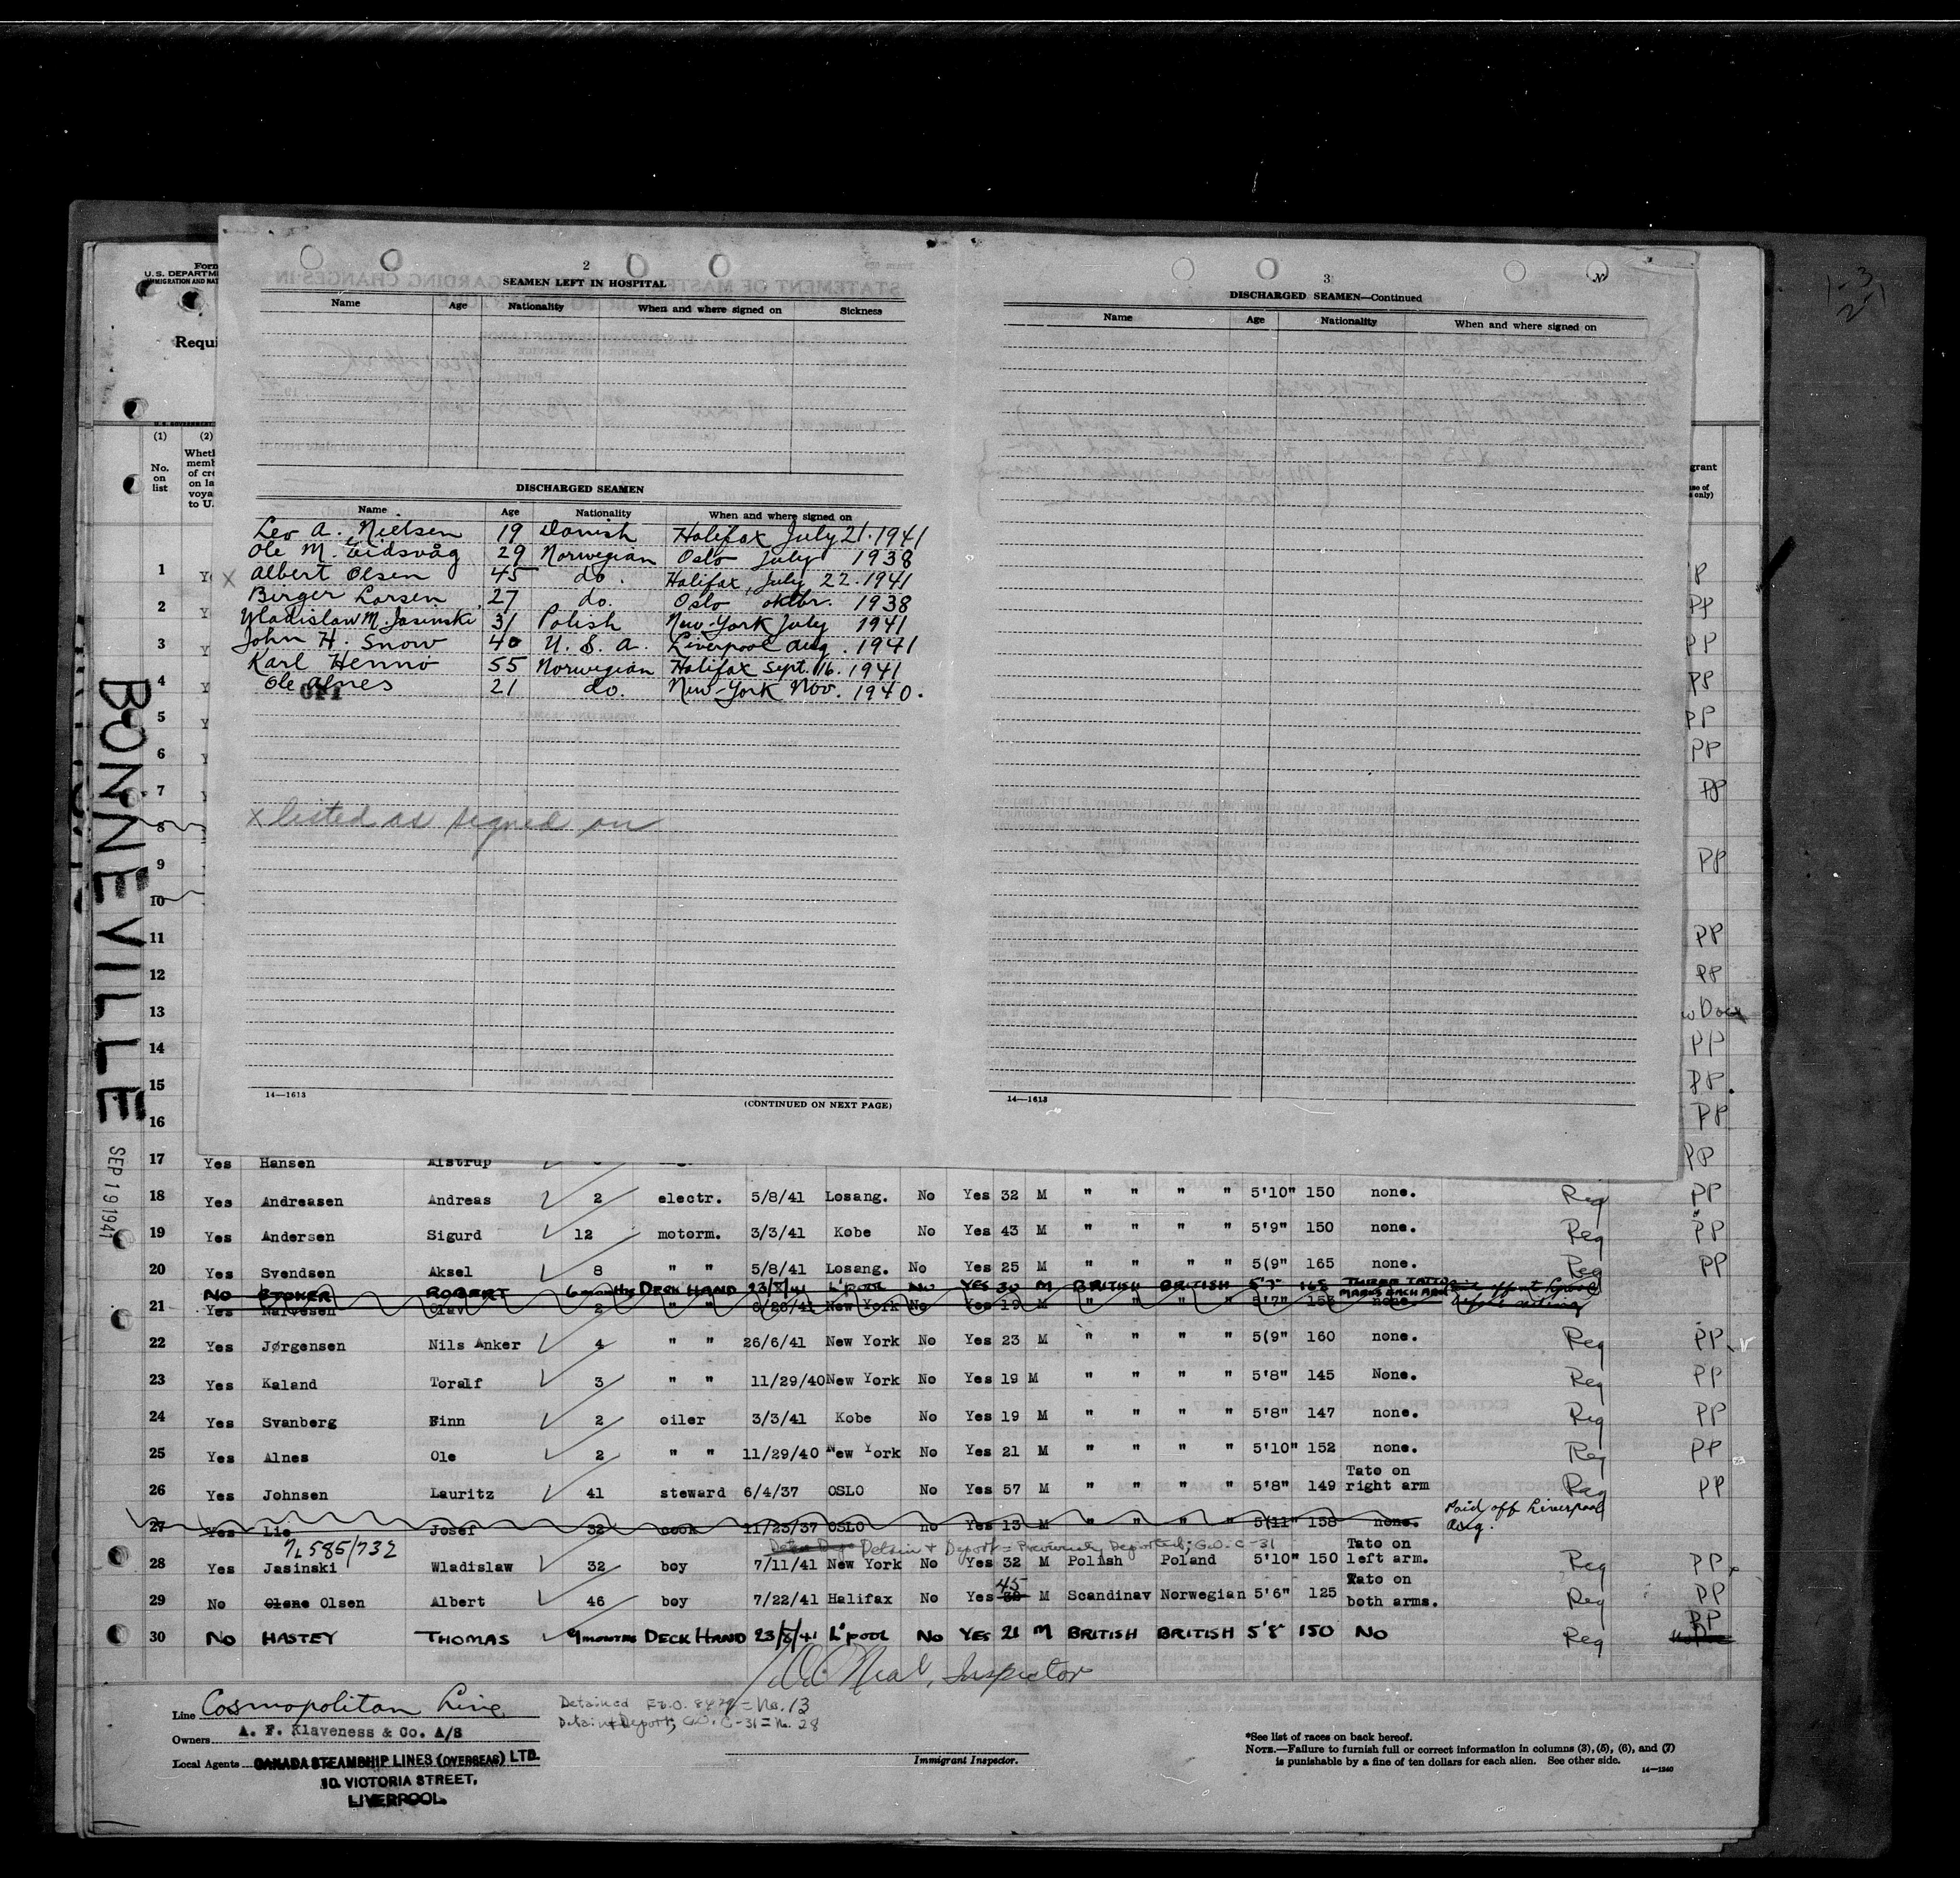 2
SEAMEN LEFT IN HOSPITAL
Name Age Nationality When and where signed on Sickness
DISCHARGED SEAMEN
Name Age Nationality When and where signed on
Leo A. Nielsen 19 Danish Halifax July 21. 1941
Ole M. Eidsvåg 29 Norwegian Oslo July 1938
x Albert Olsen 45 do. Halifax, July 22. 1941
Birger Larsen 27 do. Oslo oktbr. 1938
Wladislaw M. Jasinski 31 Polish New-York July 1941
John H. Snow 40 U. S. A. Liverpool Aug. 1941
Karl Hennø 55 Norwegian Halifax Sept. 16. 1941
Ole Alnes 21 do. New-York Nov. 1940.
x listed as signed on
14—1613
(CONTINUED ON NEXT PAGE)
3
DISCHARGED SEAMEN—Continued
Name Age Nationality When and where signed on
14—1613
Form
U.S. DEPARTM
IMMIGRATION AND NAT
Requi
(1) (2)
No. on list
Wheth
memb
of cre
on la
voya
to U.
BONNEVILLE
SEP 19 1941
1 PP
2 PP
3 PP
4 PP
5 PP
6 PP
7 PP
8
9 PP
10
11 PP
12 PP
13
14 PP
15 PP
16 PP
17 Yes Hansen Alstrup PP
18 Yes Andreasen Andreas 2 electr. 5/8/41 Losang. No Yes 32 M " " " " 5'10" 150 none. Reg PP
19 Yes Andersen Sigurd 12 motorm. 3/3/41 Kobe No Yes 43 M " " " " 5'9" 150 none. Reg PP
20 Yes Svendsen Aksel 8 " " 5/8/41 Losang. No Yes 25 M " " " " 5(9" 165 none. Reg PP
No STOKER ROBERT 6 months DECK HAND 23/8/41 L'POOL NO YES 30 M BRITISH BRITISH 5'7" 165 THREE TATTO MARKS EACH ARM
21 Yes Halvesen Olav 2 " " 6/26/41 New York No Yes 19 M " " " " 5'7" none.
22 Yes Jørgensen Nils Anker 4 " " 26/6/41 New York No Yes 23 M " " " " 5(9" 160 none. Reg PP
23 Yes Kaland Toralf 3 " " 11/29/40 New York No Yes 19 M " " " " 5'8" 145 None. Reg PP
24 Yes Svanberg Finn 2 oiler 3/3/41 Kobe No Yes 19 M " " " " 5'8" 147 none. Reg PP
25 Yes Alnes Ole 2 " " 11/29/40 New York No Yes 21 M " " " " 5'10" 152 none. Reg PP
26 Yes Johnsen Lauritz 41 steward 6/4/37 OSLO No Yes 57 M " " " " 5'8" 149 Tato on right arm Reg PP
27 Yes Lie Josef 32 cook 11/23/37 OSLO no Yes 13 M " " " " 5(11" 158 none. Paid off Liverpool Aug.
7L 585/732 Detain & Deport = Previously Deported; G.O. C-31
28 Yes Jasinski Wladislaw 32 boy 7/11/41 New York No Yes 32 M Polish Poland 5'10" 150 Tato on left arm. Reg PP
29 No Olsen Albert 46 boy 7/22/41 Halifax No Yes 45 M Scandinav Norwegian 5'6" 125 Tato on both arms. Reg PP
30 No HASTEY THOMAS 9 months DECK HAND 23/8/41 L'POOL NO YES 21 M BRITISH BRITISH 5'8" 150 NO Reg PP
O'Neal, Inspector
Line Cosmopolitan Line
Owners A. F. Klaveness & Co. A/S
Local Agents CANADA STEAMSHIP LINES (OVERSEAS) LTD.
10 VICTORIA STREET,
LIVERPOOL.
Detained Ex.O. 8429 = No. 13
Detain & Deport; G.O. C-31 = No. 28
Immigrant Inspector.
*See list of races on back hereof.
NOTE.—Failure to furnish full or correct information in columns (3), (5), (6), and (7)
is punishable by a fine of ten dollars for each alien. See other side.
14—1240